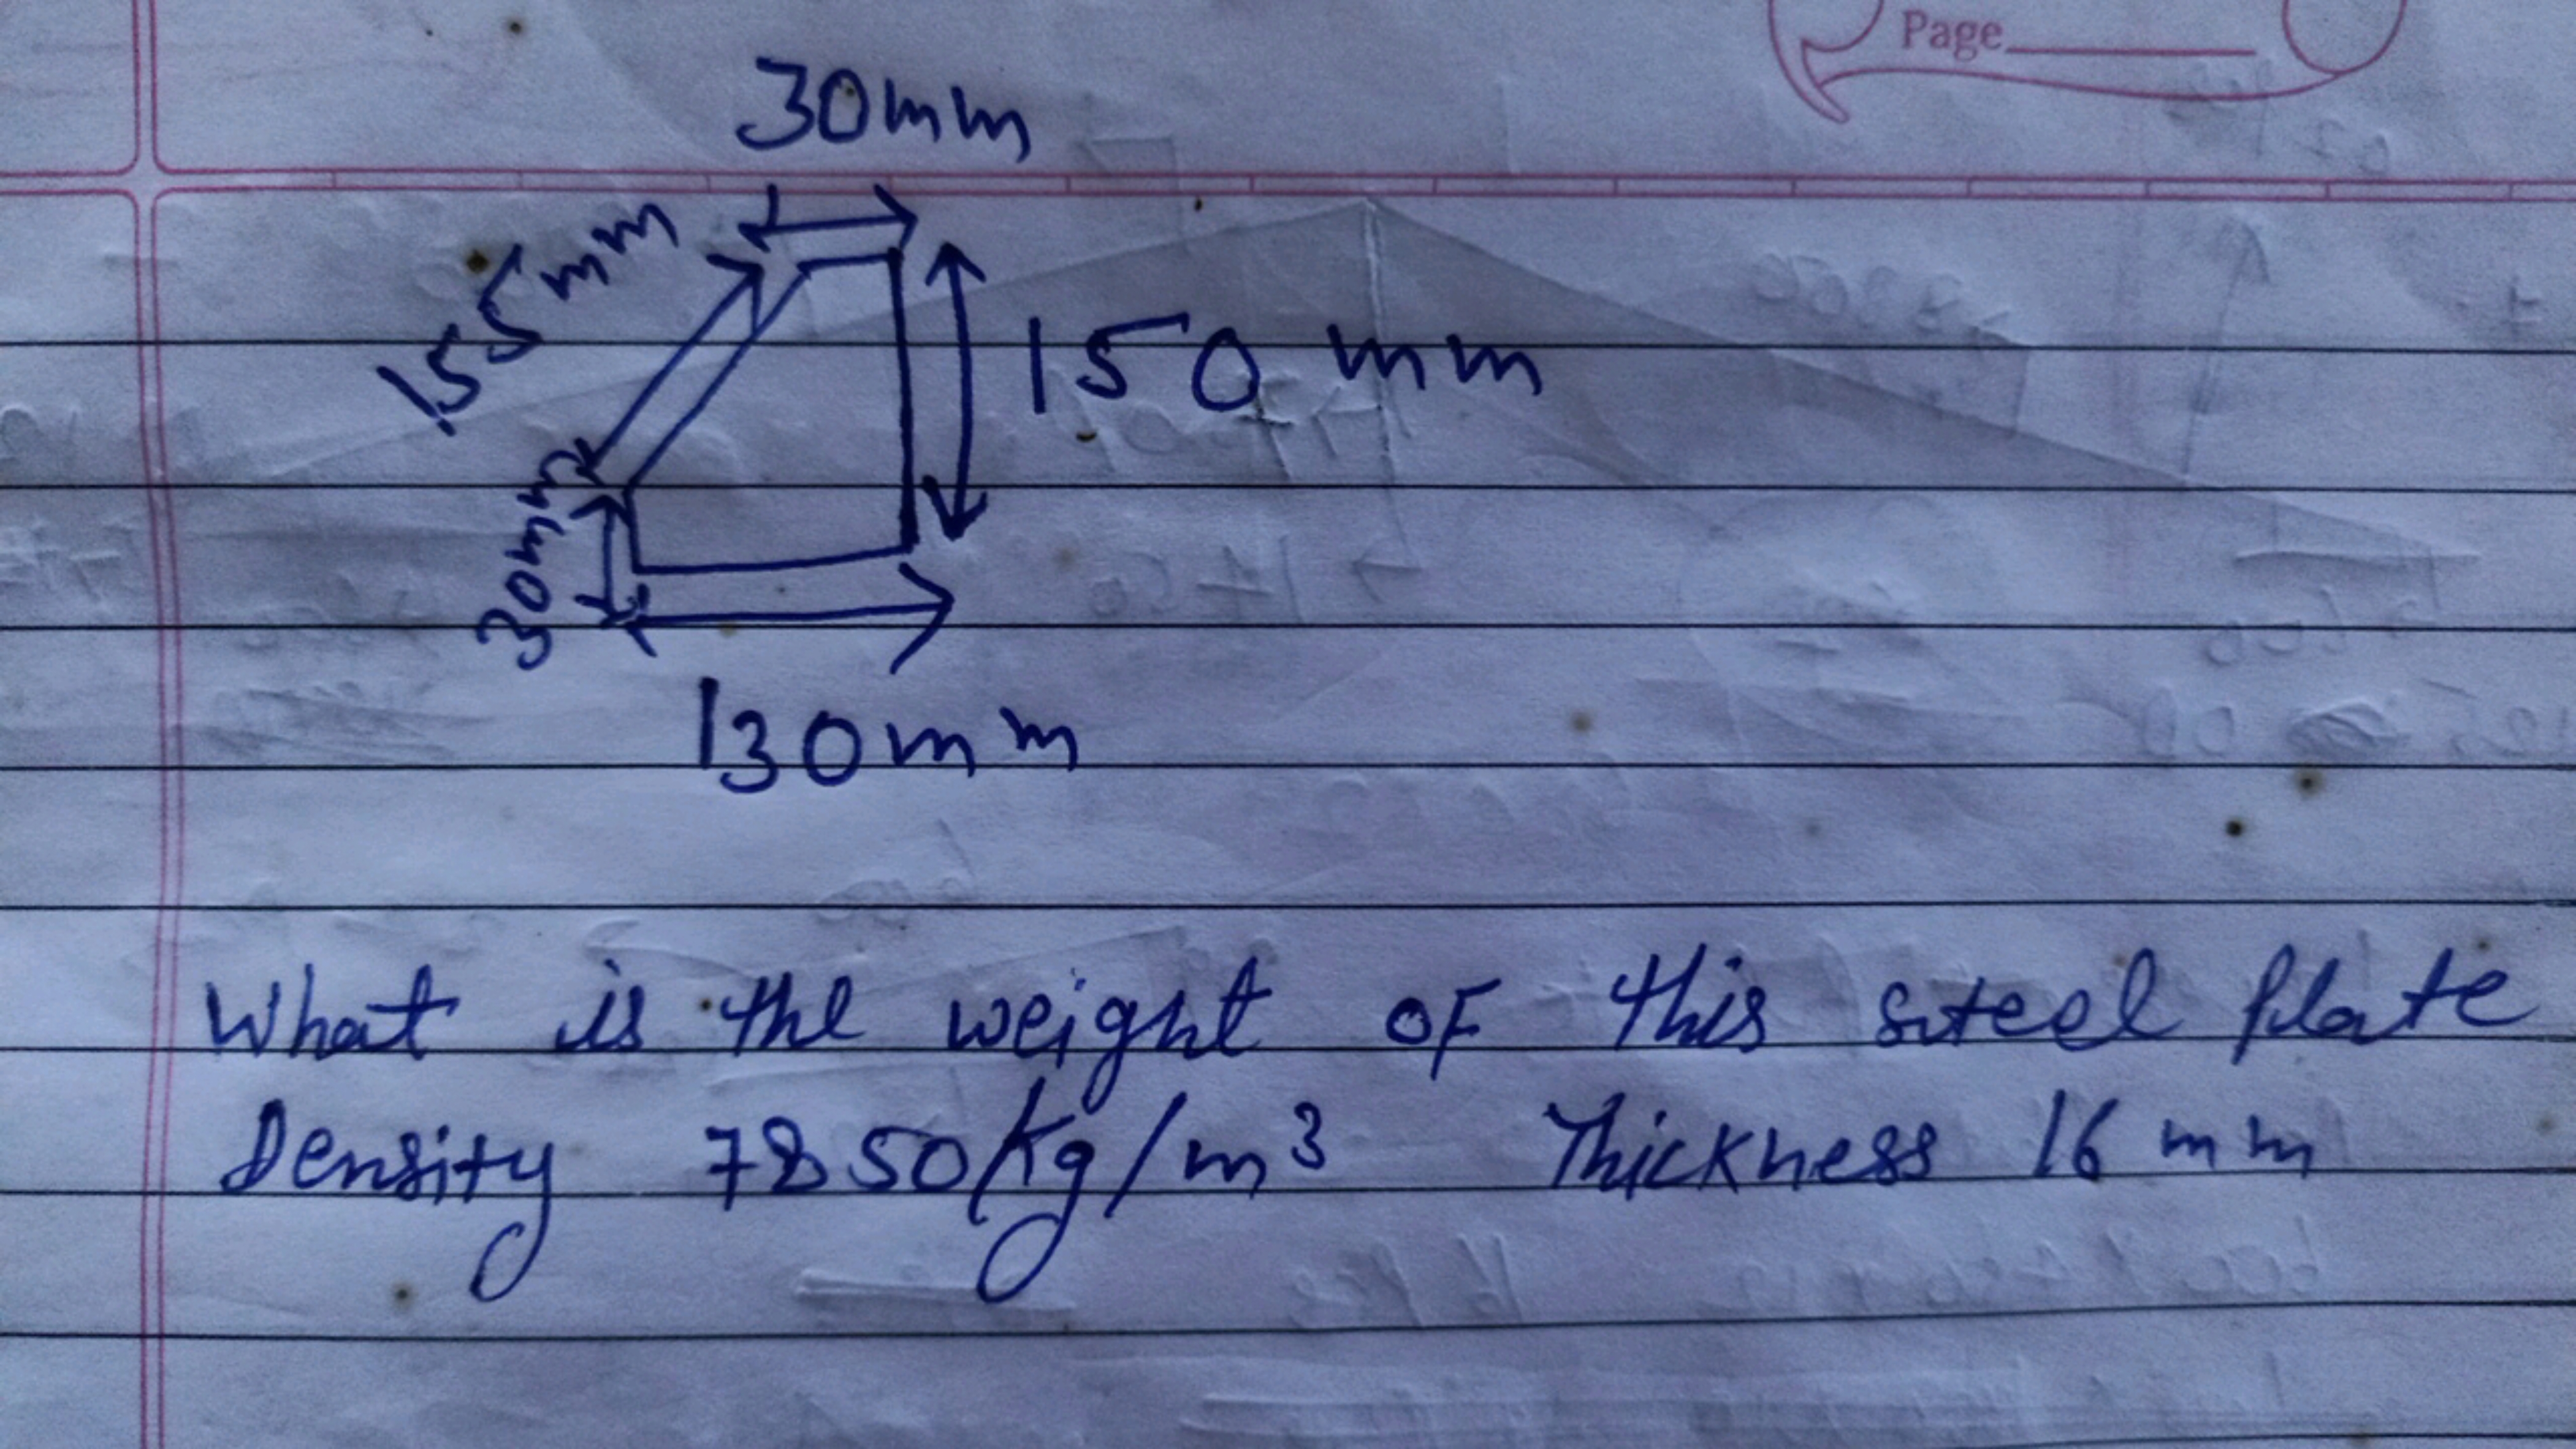 Page
30mm
155mm
150 mm
30mm
130mm
What is the weight of this steel plate
Density 7850kg/m³ Thickness 16 mm